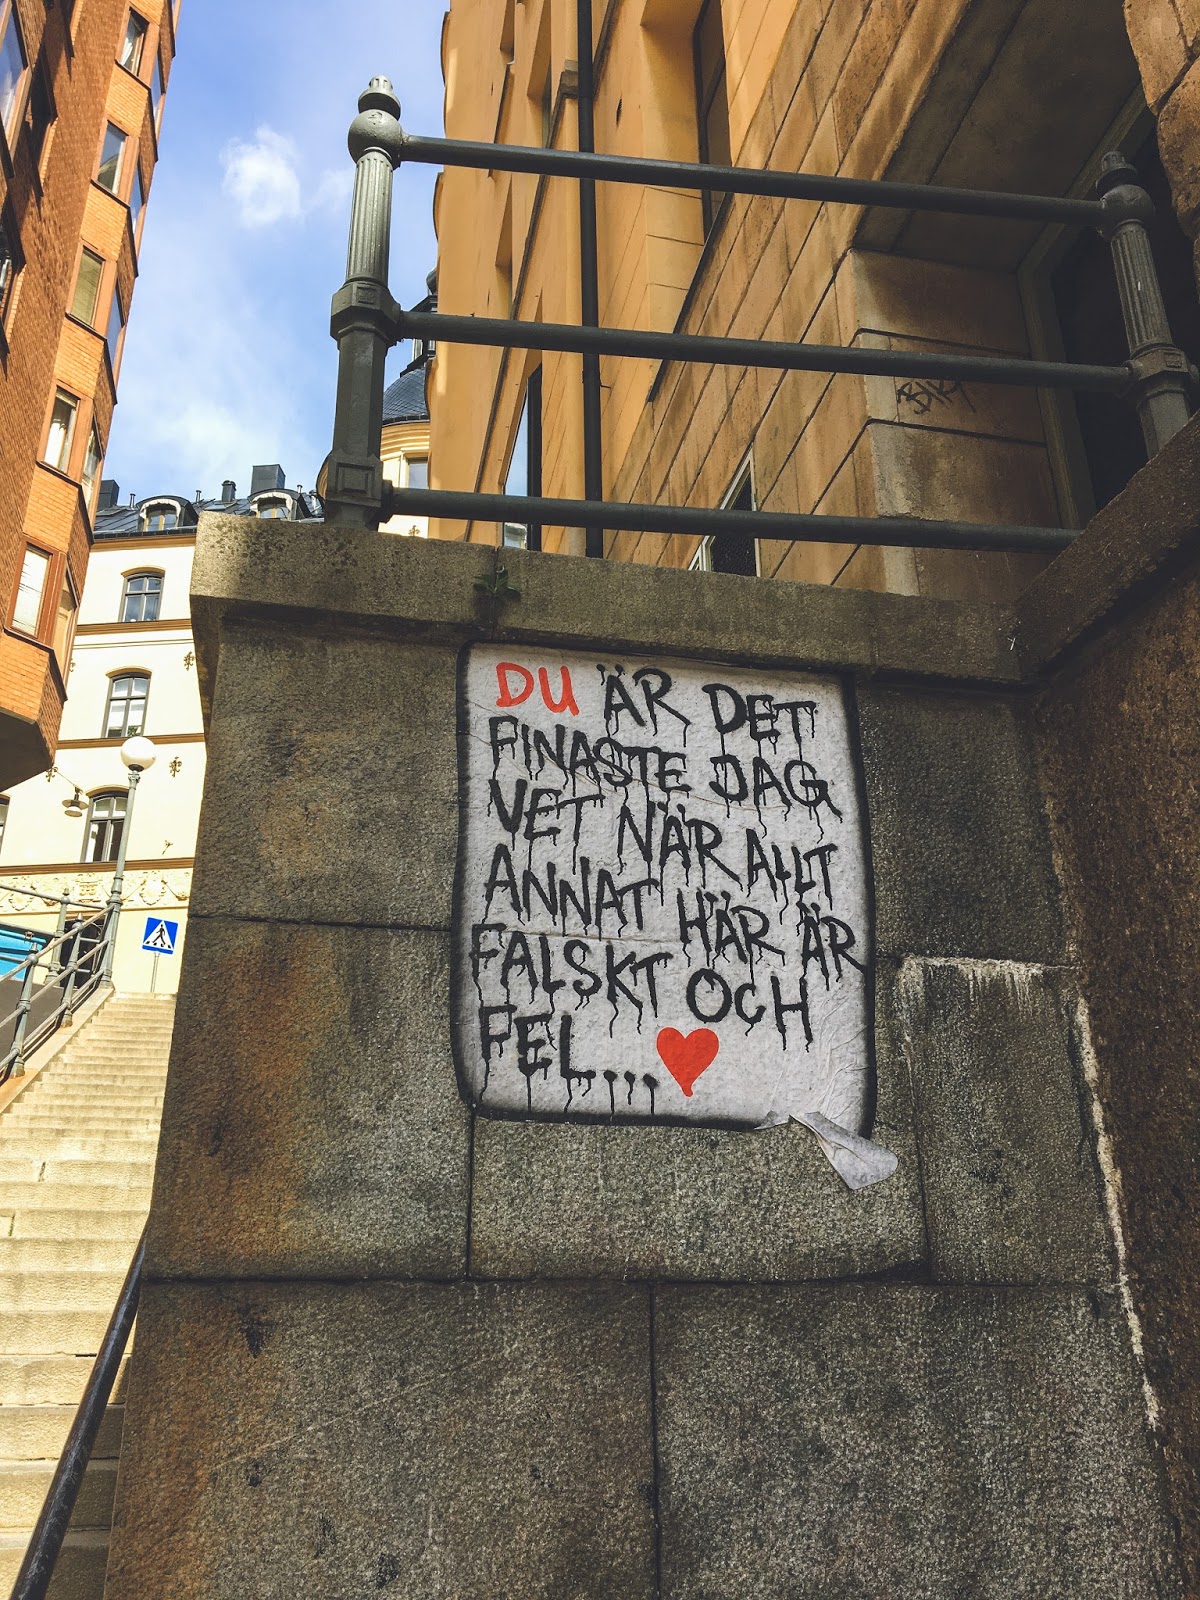 DU ÄR DET
FINASTE JAG
VET NÄR ALLT
ANNAT HÄR ÄR
FALSKT OCH
FEL...